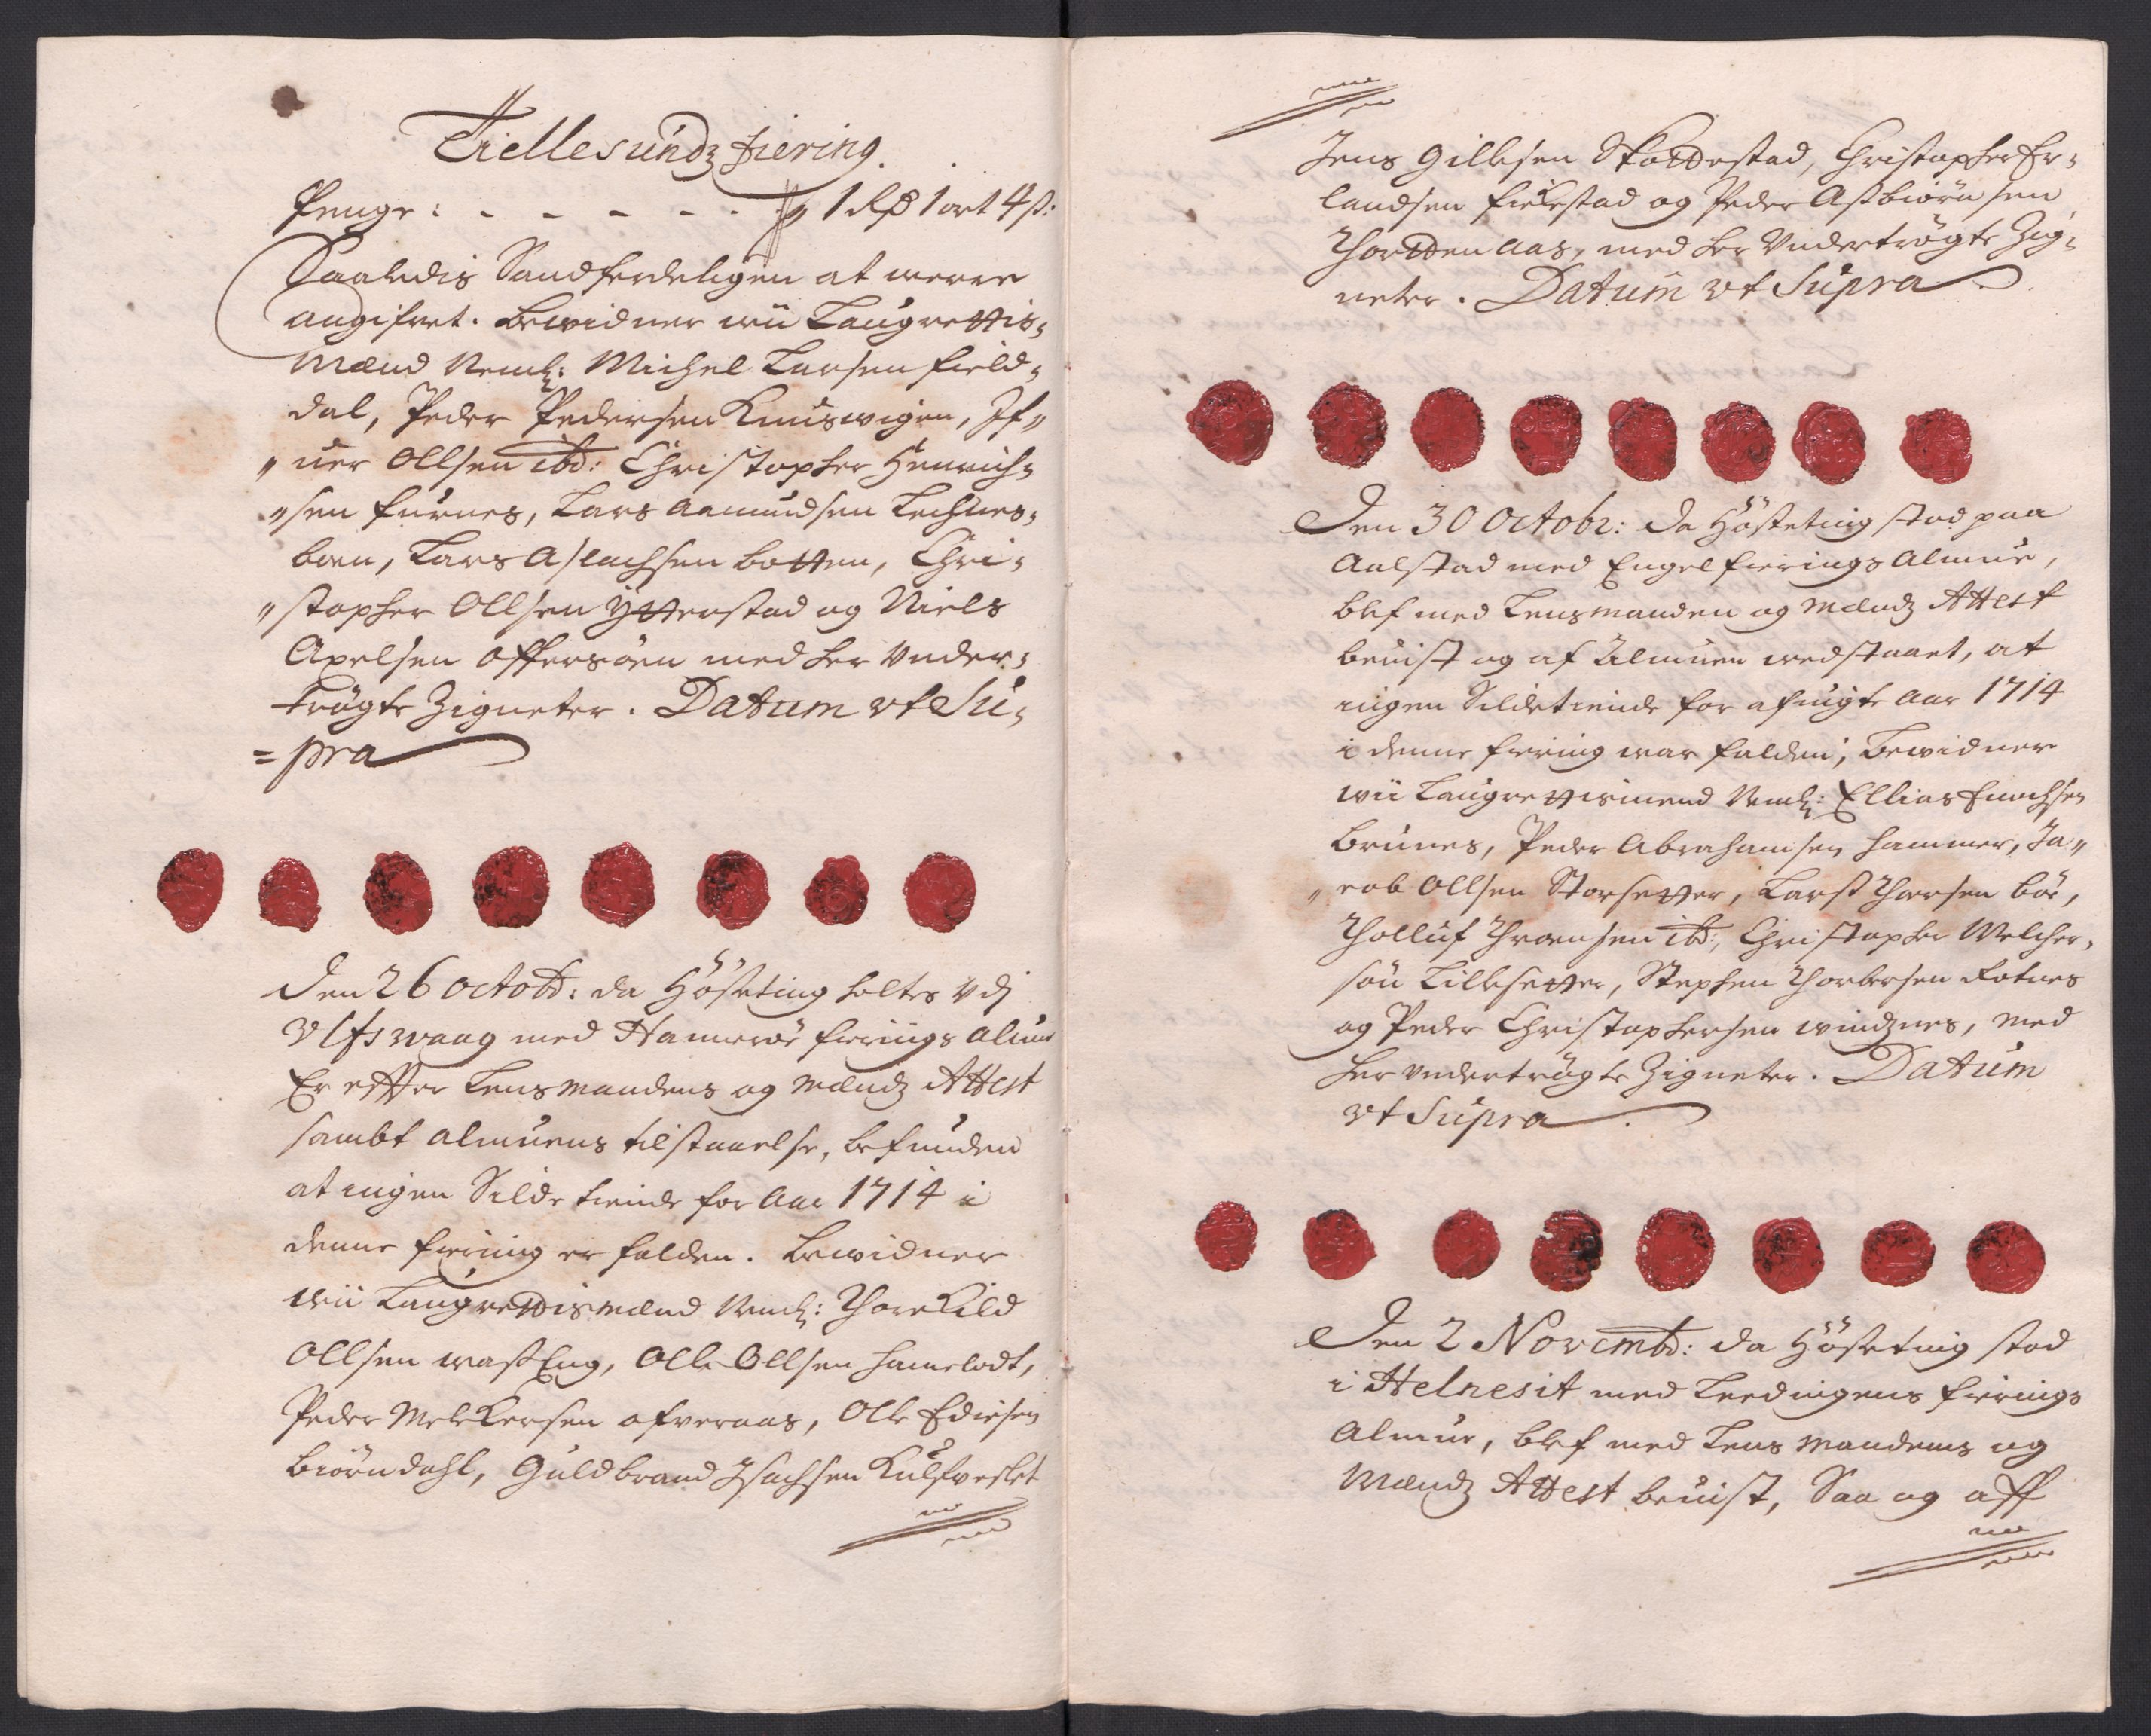 Tiellesundz fiering.
Penge: - - - - - - 1 Rdr 1 ort 4 s:
Saaledis Sandferdeligen at were
angifvet. Bewidner wii Laugrettis-
Mænd Neml: Michel Larsen Field-
dal, Peder Pedersen Kuuswigen, If-
uer Ollsen ibd: Christopher Henrich-
sen furnes, Lars Aamundsen
boen, Lars Aslachsen botten, Chri-
stopher Ollsen Ytterstad og Niels
Axelsen Offersöen med her under-
trögte Zigneter. Datum ut Su-
=pra
Den 26 octobr: da Hösteting holtes Udj
Ulfswaag med Hammeröe fierings almue
Er efter Lensmandens og Mændz Attest
sambt almuens tilstaaelse, befunden
at ingen Silde tiende for Aar 1714 i
denne fiering er falden. Bewidner
wii Laugrettismænd Neml: Thorkild
Ollsen Eng, Olle Ollsen
Peder Melckersen Olle
Biörndahl, Guldbrand Isachsen
Jens Gillesen Skottestad, Christopher Er-
landsen Fiskestad og Peder Asbiörnsen
med her Undertrögte Zig-
neter. Datum ut Supra.
Den 30 Octobr: da Hösteting stod paa
Aalstad med Engel fierings Almue,
blef med Lensmanden og Mændz Attest
beuist og af Almuen wedstaaet, at
ingen Sildetiende for afuigte Aar 1714
i denne fiering war falden; Bewidner
wii Laugrettismend Neml: Ellias Enochsen
Brunes, Peder Abrahamsen Hammer, Ja-
cob Ollsen Storsetter, Lars Thorsen böe,
Tholluf ibd:, Christopher Melcher-
sön Lillesetter, Stephen Thorbersen Rotnes
og Peder Christophersen windznes, med
her undertrögte Zigneter. Datum
ut Supra.
Den 2 Novembr: da Hösteting stod
i Helnesit med Leedingens fierings
Almue, blef med Lens Mandens og
Mændz Attest beuist, Saa og aff